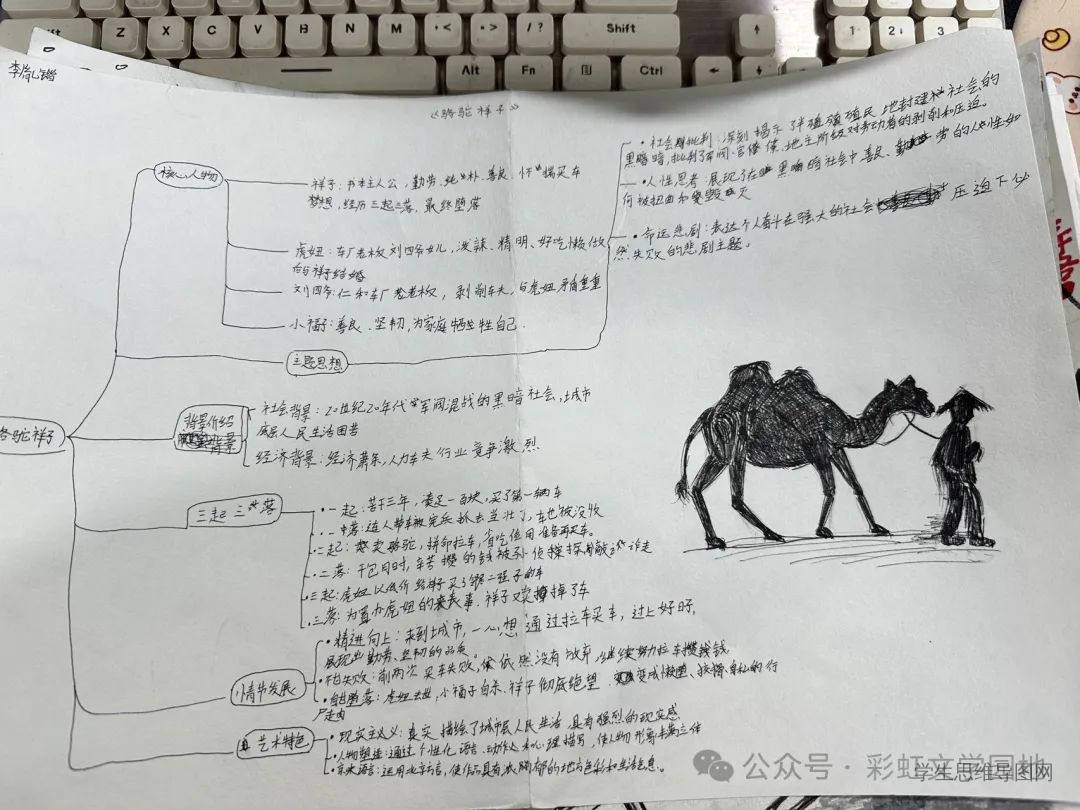 Z X C V B N M < > / ? Shift ↑ 1 2↓ 3
Alt Fn Ctrl ← ↓ →
《骆驼祥子》
核心人物
祥子：书本主人公，勤劳、纯朴、善良、怀揣买车
梦想，经历三起三落，最终堕落
虎妞：车厂老板刘四爷女儿，泼辣、精明、好吃懒做
与祥子结婚
刘四爷：仁和车厂老板，剥削车夫，与虎妞矛盾重重
小福子：善良、坚韧，为家庭牺牲自己.
主题思想
·社会批判：深刻揭示了半殖民地封建社会的
黑暗，批判了军阀、官僚、地主阶级对劳动者的剥削和压迫。
·人性思考：展现了在黑暗社会中善良、勤劳的人性如
何被扭曲和毁灭
·命运悲剧：表达个人奋斗在强大的社会压迫下必
然失败的悲剧主题。
骆驼祥子
背景介绍
背景
社会背景：20世纪20年代军阀混战的黑暗社会，城市
底层人民生活困苦
经济背景：经济萧条，人力车夫行业竞争激烈
三起三落
·一起：苦干三年，凑足一百块，买了第一辆车
·一落：连人带车被宪兵抓去当壮丁，车也被没收
·二起：卖骆驼，拼命拉车，省吃俭用准备再买车。
·二落：干包月时，辛苦攒的钱被孙侦探敲诈走
·三起：虎妞以低价给祥子买了邻居二强子的车
·三落：为置办虎妞的丧事，祥子又卖掉了车
情节发展
·精进向上：来到城市，一心想通过拉车买车，过上好日子，
展现出勤劳、坚韧的品质。
·失败：前两次买车失败，依然没有放弃，继续努力拉车攒钱
·自甘堕落：虎妞去世，小福子自杀，祥子彻底绝望 变成懒惰、狡猾、自私的行
尸走肉
艺术特色
·现实主义：真实描绘了城市底层人民生活，具有强烈的现实感
·人物塑造：通过个性化语言、动作心理描写，使人物形象丰满立体
·京味语言：运用北京方言，使作品具有浓郁的地方色彩和生活气息。
公众号·彩虹文学园地
学生思维导图网